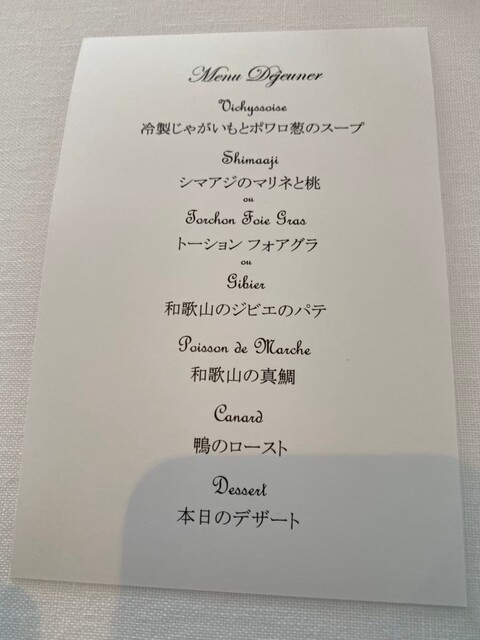 Menu Dejeuner
Vichyssoise
冷製じゃがいもとポワロ葱のスープ
Shimaaji
シマアジのマリネと桃
ou
Torchon Foie Gras
トーション フォアグラ
ou
Gibier
和歌山のジビエのパテ
Poisson de Marche
和歌山の真鯛
Canard
鴨のロースト
Dessert
本日のデザート